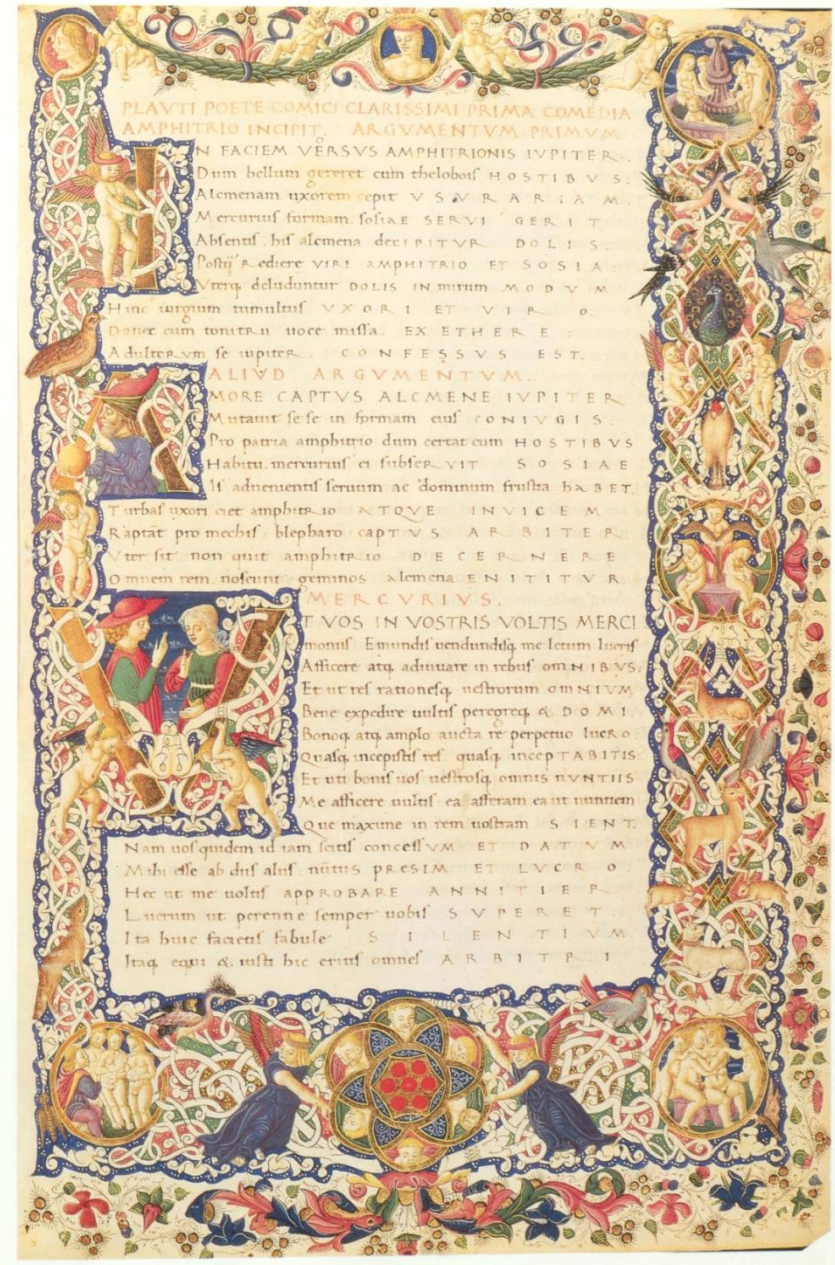 PLAVTI POETE COMICI CLARISSIMI PRIMA COMEDIA
AMPHITRIO INCIPIT. ARGVMENTVM PRIMVM
IN FACIEM VERSVS AMPHITRIONIS IVPITER.
Dum bellum gereret cum thelobois HOSTIBVS.
Alcmenam uxorem cepit VSVRARIAM.
Mercurius formam sosiae SERVI GERIT
Absentis. his alcmena deciPITVR DOLIS.
Postq̃ Rediere VIRI AMPHITRIO ET SOSIA.
Vterq; deluduntur DOLIS IN mirum MODVM
Hinc iurgium tumultus VXORI ET VIRO.
Donec cum tonitru uoce missa. EX ETHERE
AdulteRVm se iupiter. CONFESSVS EST.
ALIVD ARGVMENTVM.
AMORE CAPTVS ALCMENE IVPITER
Mutauit sese in formam eius CONIVGIS.
Pro patria amphitrio dum certat cum HOSTIBVS
Habitu. mercurius ei subseRVIT SOSIAE
Is aduenientis seruum ac dominum frustra haBET.
Turbas uxori ciet amphitrio ATQVE INVICEM
Raptat pro mechis. blepharo capTVS ARBITER
Vter sit non quit amphitrio DECERNERE
Omnem rem noscunt. geminos alcmena ENITITVR.
MERCVRIVS.
VT VOS IN VOSTRIS VOLTIS MERCI
moniis Emundis uendundisq; me letum lucris
Afficere atq; adiuuare in rebus omNIBVS.
Et ut res rationesq; uestrorum omNIVM
Bene expedire uultis peregreq; & DOMI.
Bonoq; atq; amplo aucta re perpetuo lucRO.
Quasq; incepistis res quasq; incepTABITIS
Et uti bonis uos uestrosq; omnis NVNTIIS
Me afficere uultis ea afferam ea ut nuntiem
Que maxime in rem uostram SIENT.
Nam uos quidem id iam scitis concessVM ET DATVM
Mihi esse ab diis aliis nutiis PRESIM ET LVCRO
Hec ut me uoltis APPROBARE ANNITIER
Lucrum ut perenne semper uobis SVPERET.
Ita huic facietis fabule SILENTIVM
Itaq; equi & iusti hic eritis omnes ARBITRI